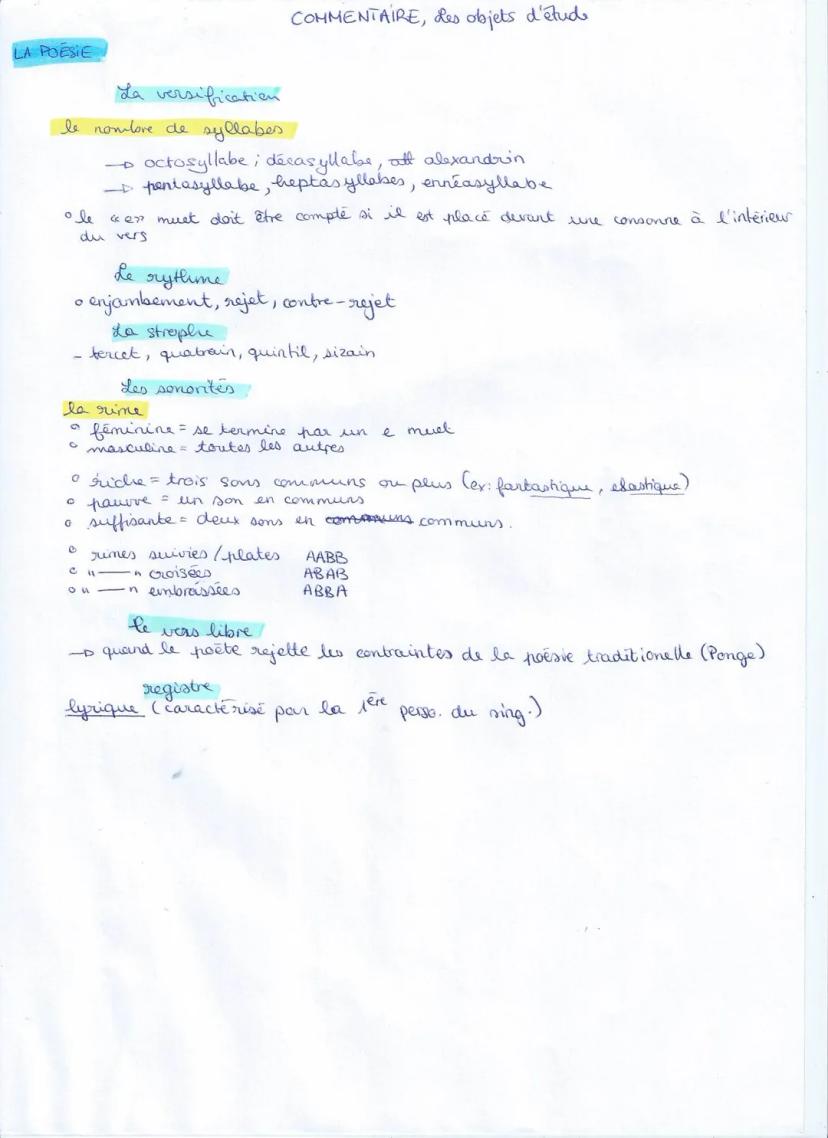 COMMENTAIRE, Les objets d'étude
LA POÉSIE
La versification
le nombre de syllabes
→ octosyllabe ; décasyllabe, alexandrin
→ pentasyllabe, heptasyllabes, ennéasyllabe
° le «e» muet doit être compté si il est placé devant une consonne à l'intérieur
du vers
Le rythme
° enjambement, rejet, contre-rejet
La strophe
- tercet, quatrain, quintil, sizain
Les sonorités
la rime
° féminine = se termine par un e muet
° masculine = toutes les autres
° riche = trois sons communs ou plus (ex: fantastique, elastique)
° pauvre = un son en communs
° suffisante = deux sons en communs communs.
° rimes suivies/plates AABB
° " — " croisées ABAB
° " — " embrassées ABBA
le vers libre
→ quand le poète rejette les contraintes de la poésie traditionelle (Ponge)
registre
lyrique (caractérisé par la 1ère perso. du sing.)